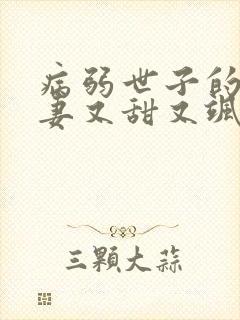 病弱世子的
妻又甜又飒
三顆大蒜